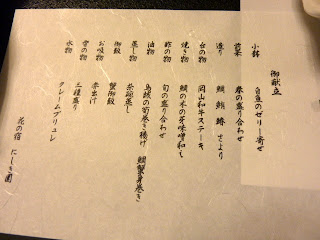 御献立
小鉢 白魚のゼリー寄せ
前菜 春の盛り合わせ
造り 鯛 鮪 鰆 さより
台の物 岡山和牛ステーキ
焼き物 鯛の木の芽味噌和え
酢の物 旬の盛り合わせ
油物 鳥賊の筍巻き揚げ 鯛蟹身巻き
蒸し物 茶碗蒸し
御飯 蟹御飯
お吸物 赤出汁
香の物 三種盛り
水物 クレームブリュレ
花の宿 にしき園